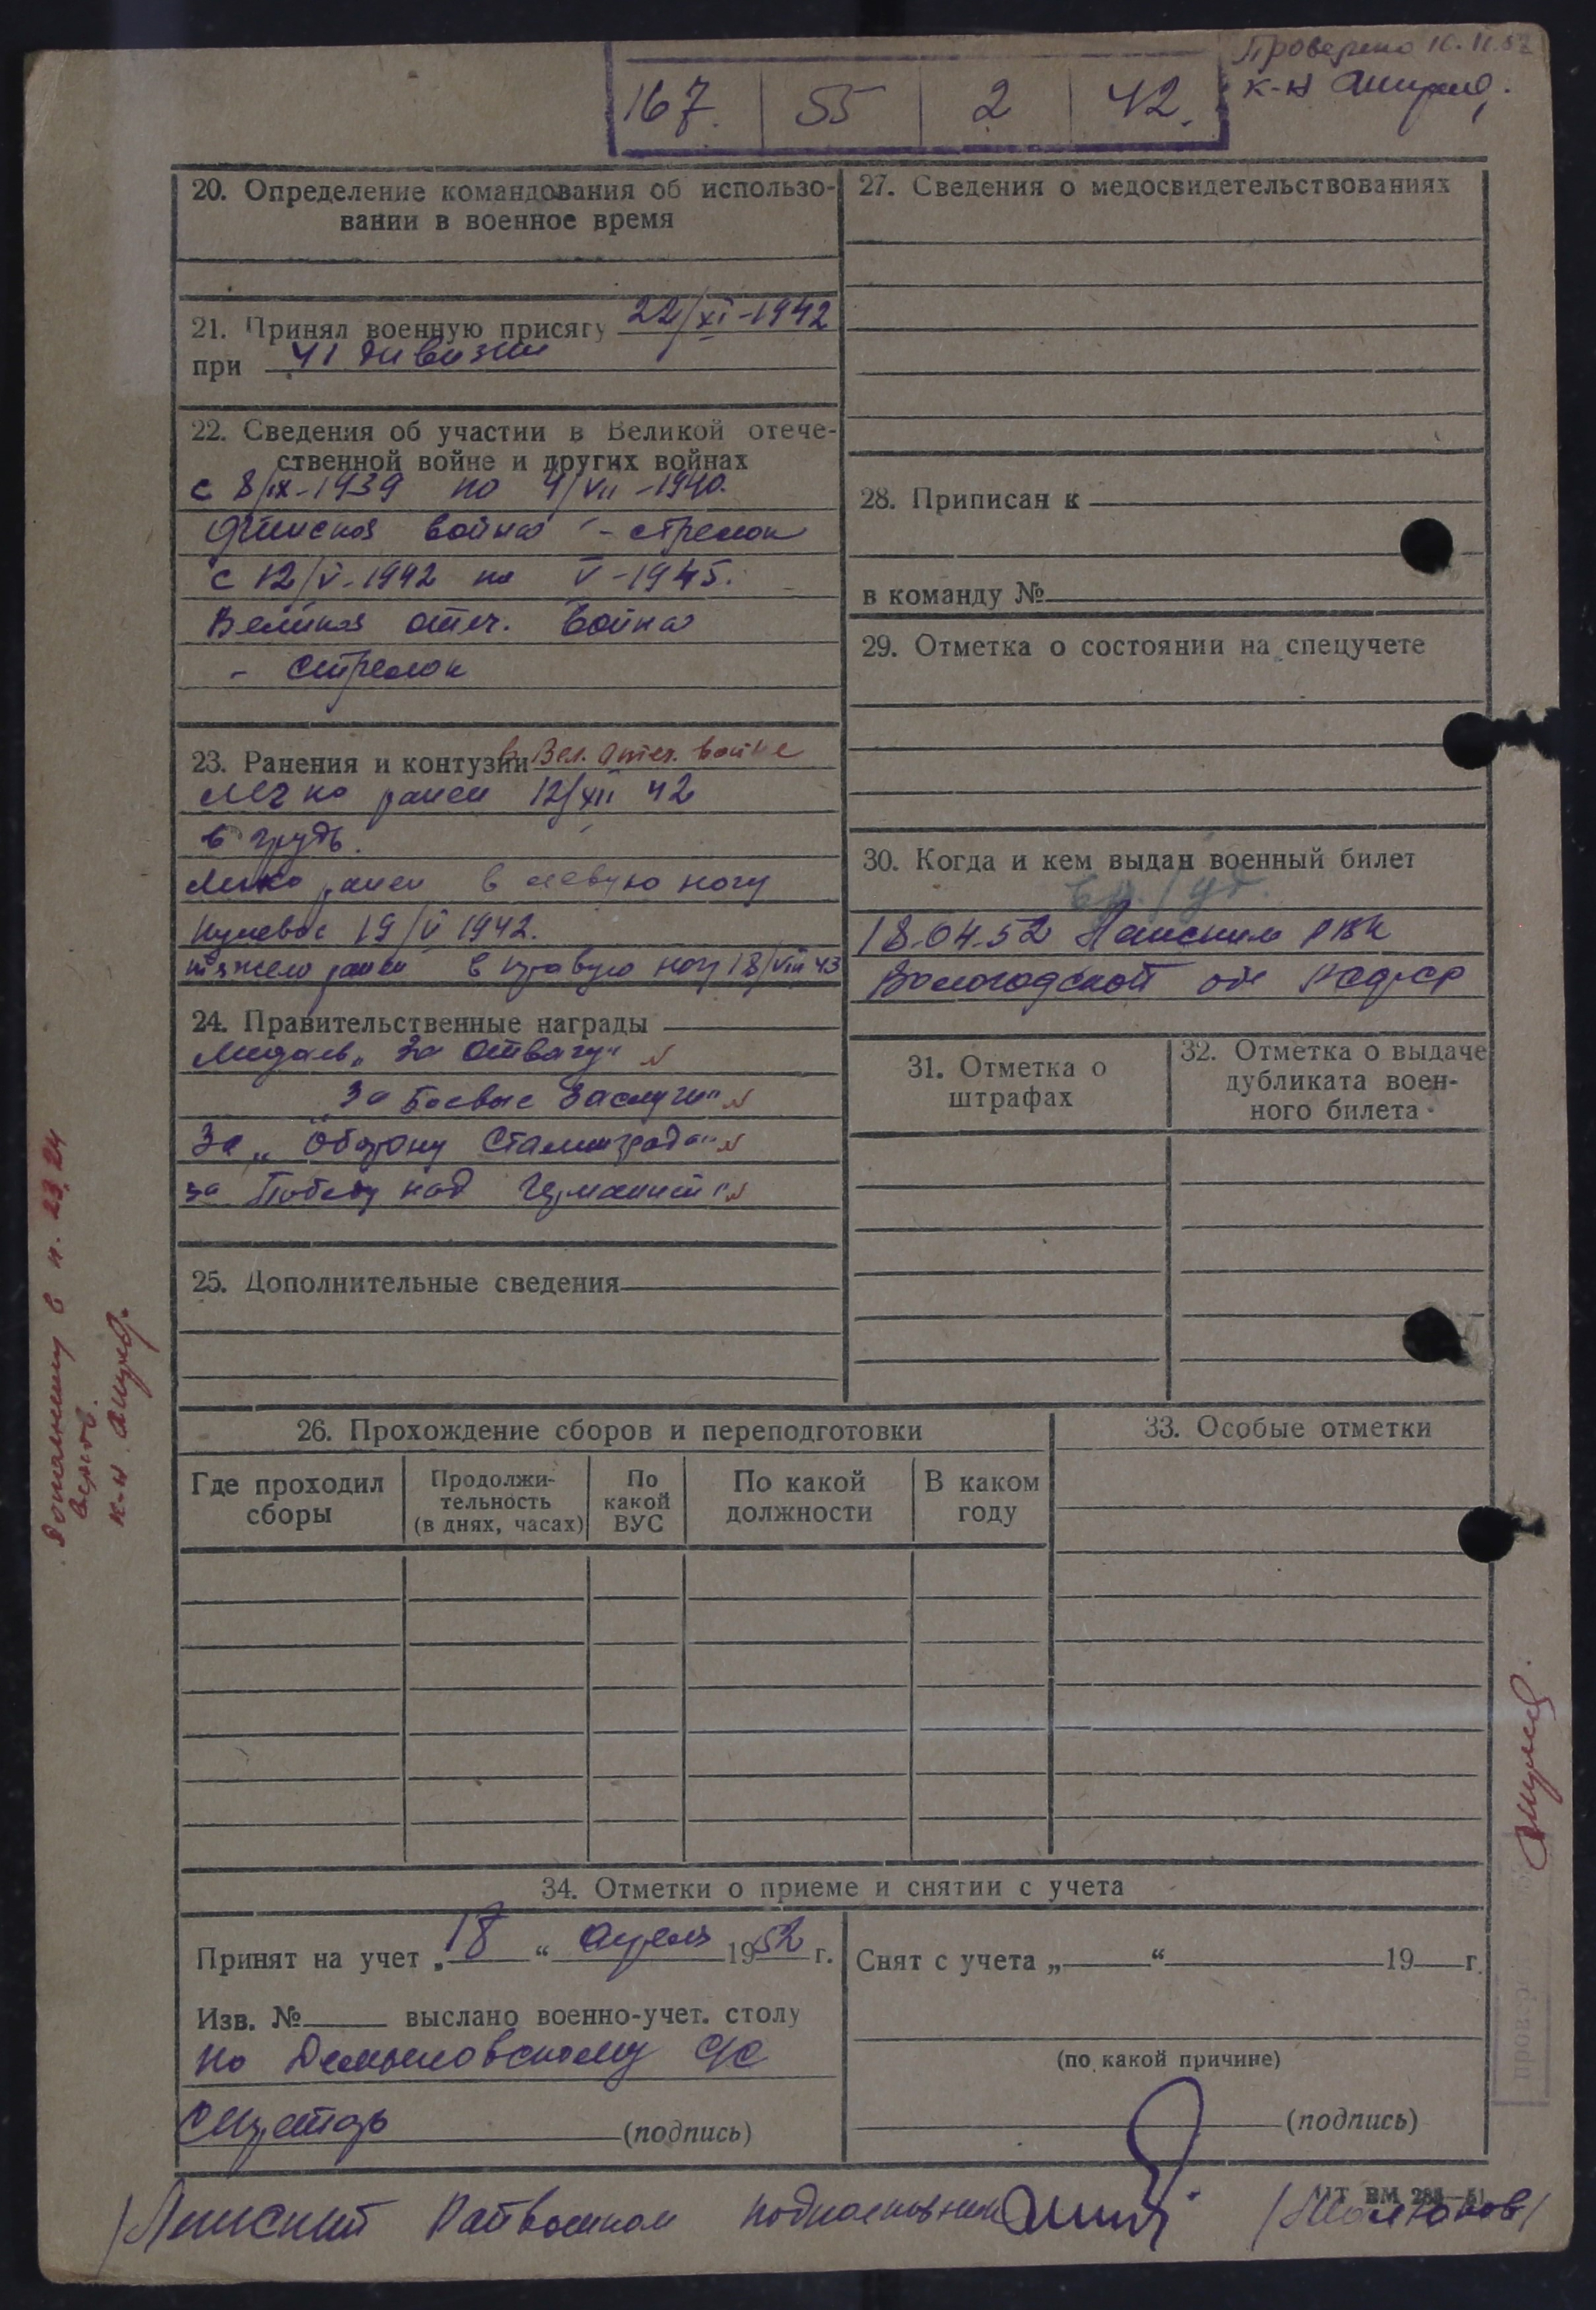 Проверено 10.11.52
к-н
167. 55 2 42.
20. Определение командования об использо-
вании в военное время
21. Принял военную присягу 22/XI-1942
при 41 дивизии
22. Сведения об участии в Великой отече-
ственной войне и других войнах
с 8/IX-1939 по 4/VII-1940.
Финская война - стрелок
с 12/V-1942 по V-1945.
Великая отеч. война
- стрелок
23. Ранения и контузии в Вел. Отеч. войне
Легко ранен 12/XII 42
в грудь.
Легко ранен в левую ногу
пулевое 19/V 1942.
тяжело ранен в правую ногу 18/VIII 43
24. Правительственные награды
Медаль „За Отвагу"
„За Боевые Заслуги"
За „Оборону Сталинграда"
за Победу над Германией"
25. Дополнительные сведения
27. Сведения о медосвидетельствованиях
28. Приписан к
в команду №
29. Отметка о состоянии на спецучете
30. Когда и кем выдан военный билет
18.04.52 РВК
Вологодской
31. Отметка о
штрафах
32. Отметка о выдаче
дубликата воен-
ного билета
26. Прохождение сборов и переподготовки
Где проходил
сборы
Продолжи-
тельность
(в днях, часах)
По
какой
ВУС
По какой
должности
В каком
году
33. Особые отметки
34. Отметки о приеме и снятии с учета
Принят на учет „18" апреля 1952 г.
Изв. № выслано военно-учет. столу
по Демьяновскому с/с
(подпись)
Снят с учета „ " 19 г.
(по какой причине)
(подпись)
Райвоенком подполковник
ВМ
в п. 23, 24
к-н